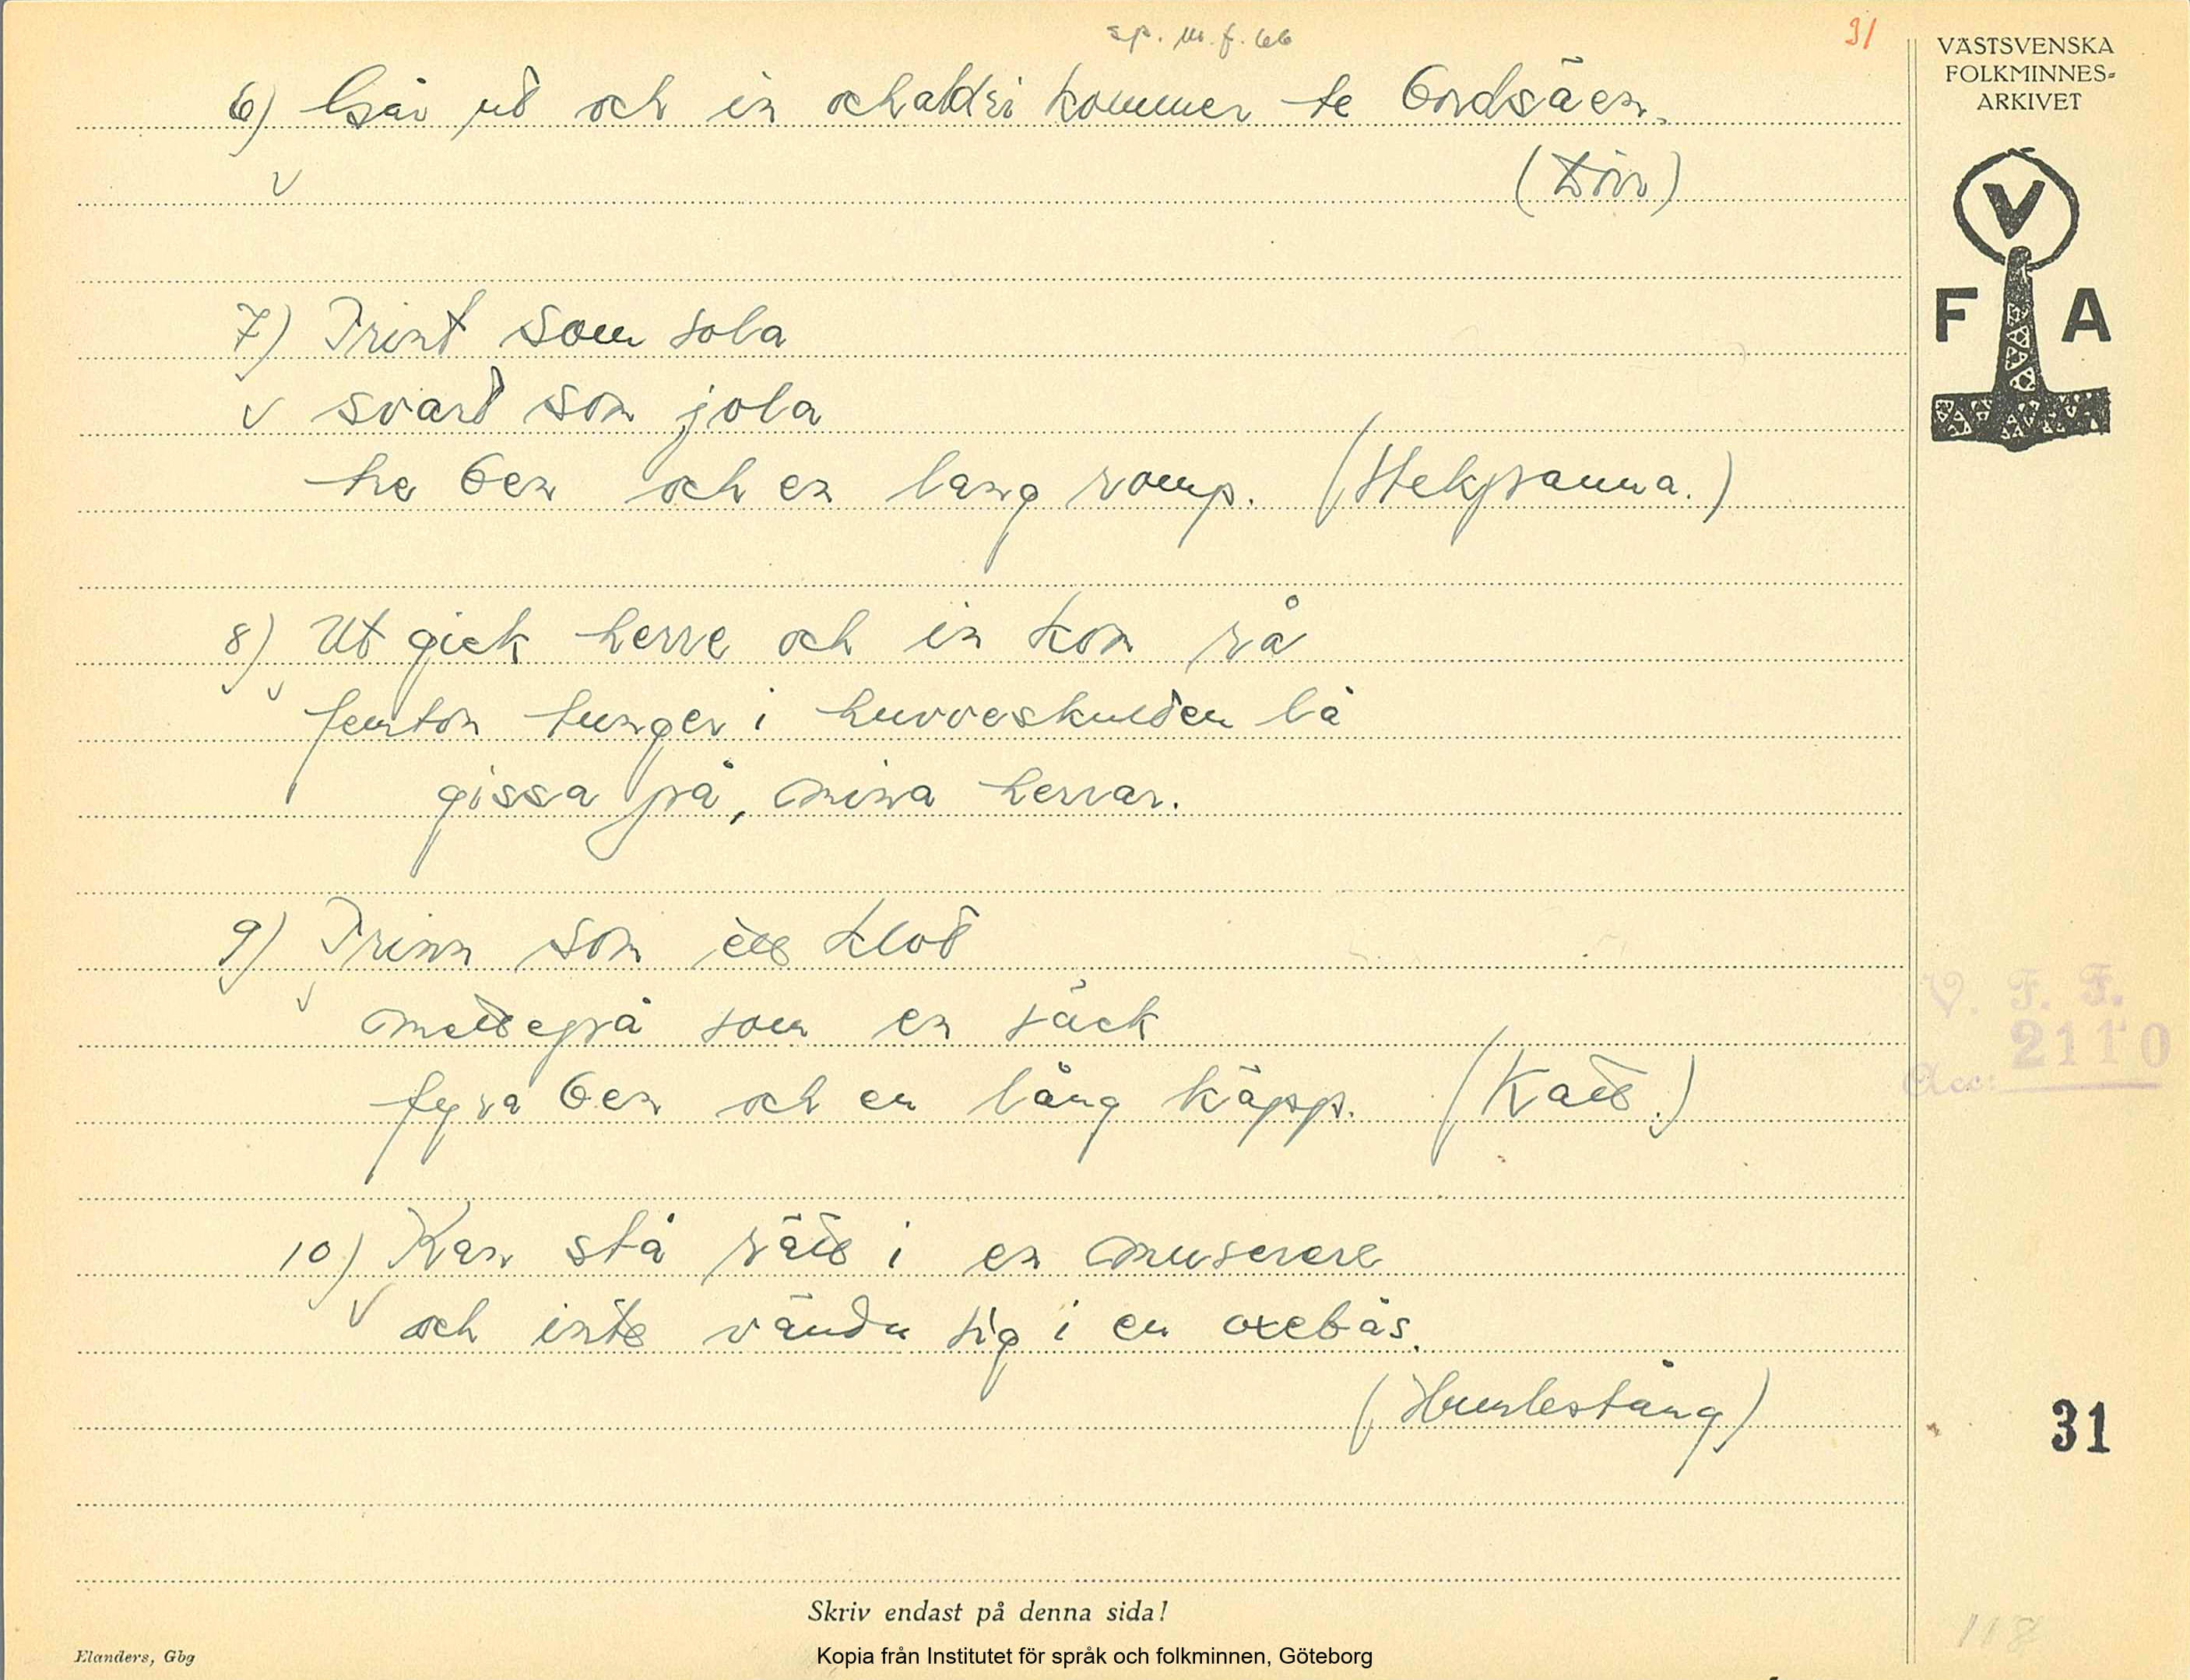 sp. m. f. 66
31
VÄSTSVENSKA
FOLKMINNES-
ARKIVET
V
F A
6) Går ud och in och aldri kommer te bordsäen.
(Dörr)
7) Trint som sola
svart som jola
tre ben och en lang romp. (Stekpanna.)
8) Ut gick herre och in kom rå
femton tunger i huvveskulden lå
gissa på, mina herrar.
9) Trinn som ett klot
mettegrå som en säck
fyra ben och en lång käpp. (Katt.)
10) Kan stå rätt i en muserere
och inte vända sig i en oxebås.
(Humlestång)
V. F. F.
Acc: 2110
31
118
Skriv endast på denna sida!
Elanders, Gbg
Kopia från Institutet för språk och folkminnen, Göteborg